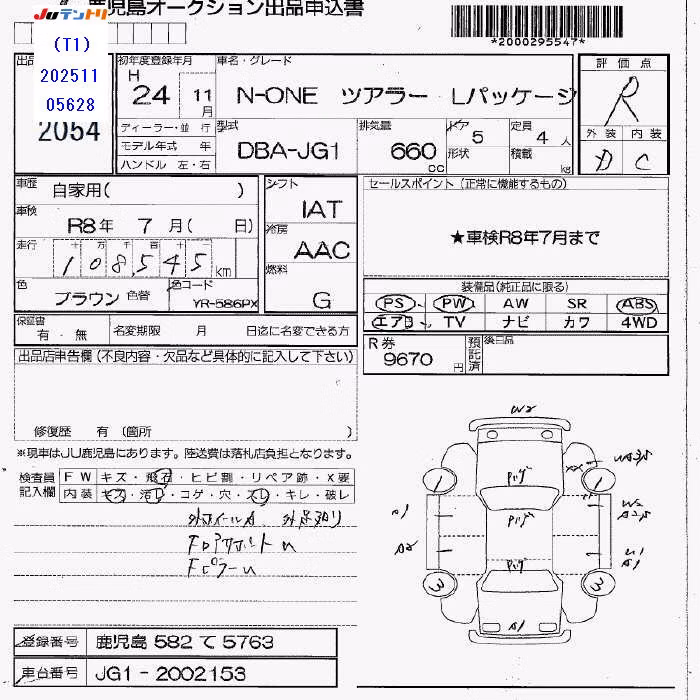 JUテントリ
鹿児島オークション出品申込書
(T1)
202511
05628
2054
*2000295547*
初年度登録年月
H 24 11月
車名・グレード
N-ONE ツアラー Lパッケージ
評価点
R
外装 内装
D C
ディーラー・並行
モデル年式 年
ハンドル 左・右
型式
DBA-JG1
排気量
660 cc
ドア 5
形状
定員 4 人
積載 kg
車歴
自家用( )
車検
R8年 7月( 日)
走行
十万千百十
108,545 km
色
ブラウン 色替
色コード
YR-586PX
シフト
IAT
冷房
AAC
燃料
G
セールスポイント(正常に機能するもの)
★車検R8年7月まで
装備品(純正品に限る)
PS PW AW SR ABS
エアB TV ナビ カワ 4WD
R券
9670 円
預託済
後日品
保証書
有・無
名変期限 月 日迄に名変できる方
出品店申告欄(不良内容・欠品など具体的に記入して下さい)
修復歴 有(箇所 )
※現車はJU鹿児島にあります。陸送費は落札店負担となります。
検査員記入欄
FW キズ・飛石・ヒビ割・リペア跡・X要
内装 キズ・汚レ・コゲ・穴・スレ・キレ・破レ
W2
A1
A2
W2
W1
A1
A1
1
1
3
3
登録番号
鹿児島 582 て 5763
車台番号
JG1-2002153